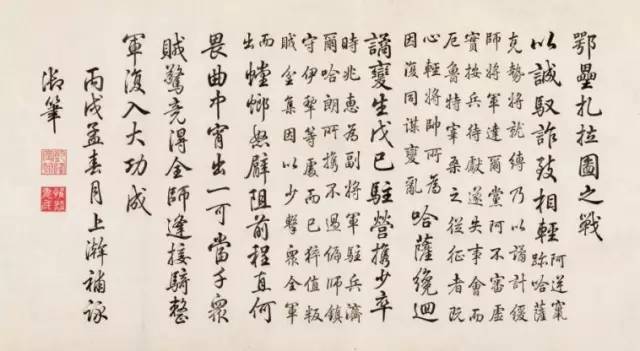 鄂壘扎拉圖之戰
以誠馭詐致相輕
阿逆竄
跡哈薩
克勢將就縛乃以詭計緩
師將軍達爾黨阿不審虛
實按兵待獻遂失事會而
厄魯特宰桑之從征者既
心輕將帥所為
因復同謀變亂
哈薩纔迴
譎變生戊已駐營攜少卒
時兆惠為副將軍駐兵濟
爾哈朗所攜不過偏師鎮
守伊犂等處而已猝值叛
賊坌集因以少擊眾全軍
而
出
螳螂怒臂阻前程直何
畏曲中宵出一可當千眾
賊驚竟得全師逢接騎整
軍復入大功成
丙戌孟春月上澣補詠
御筆